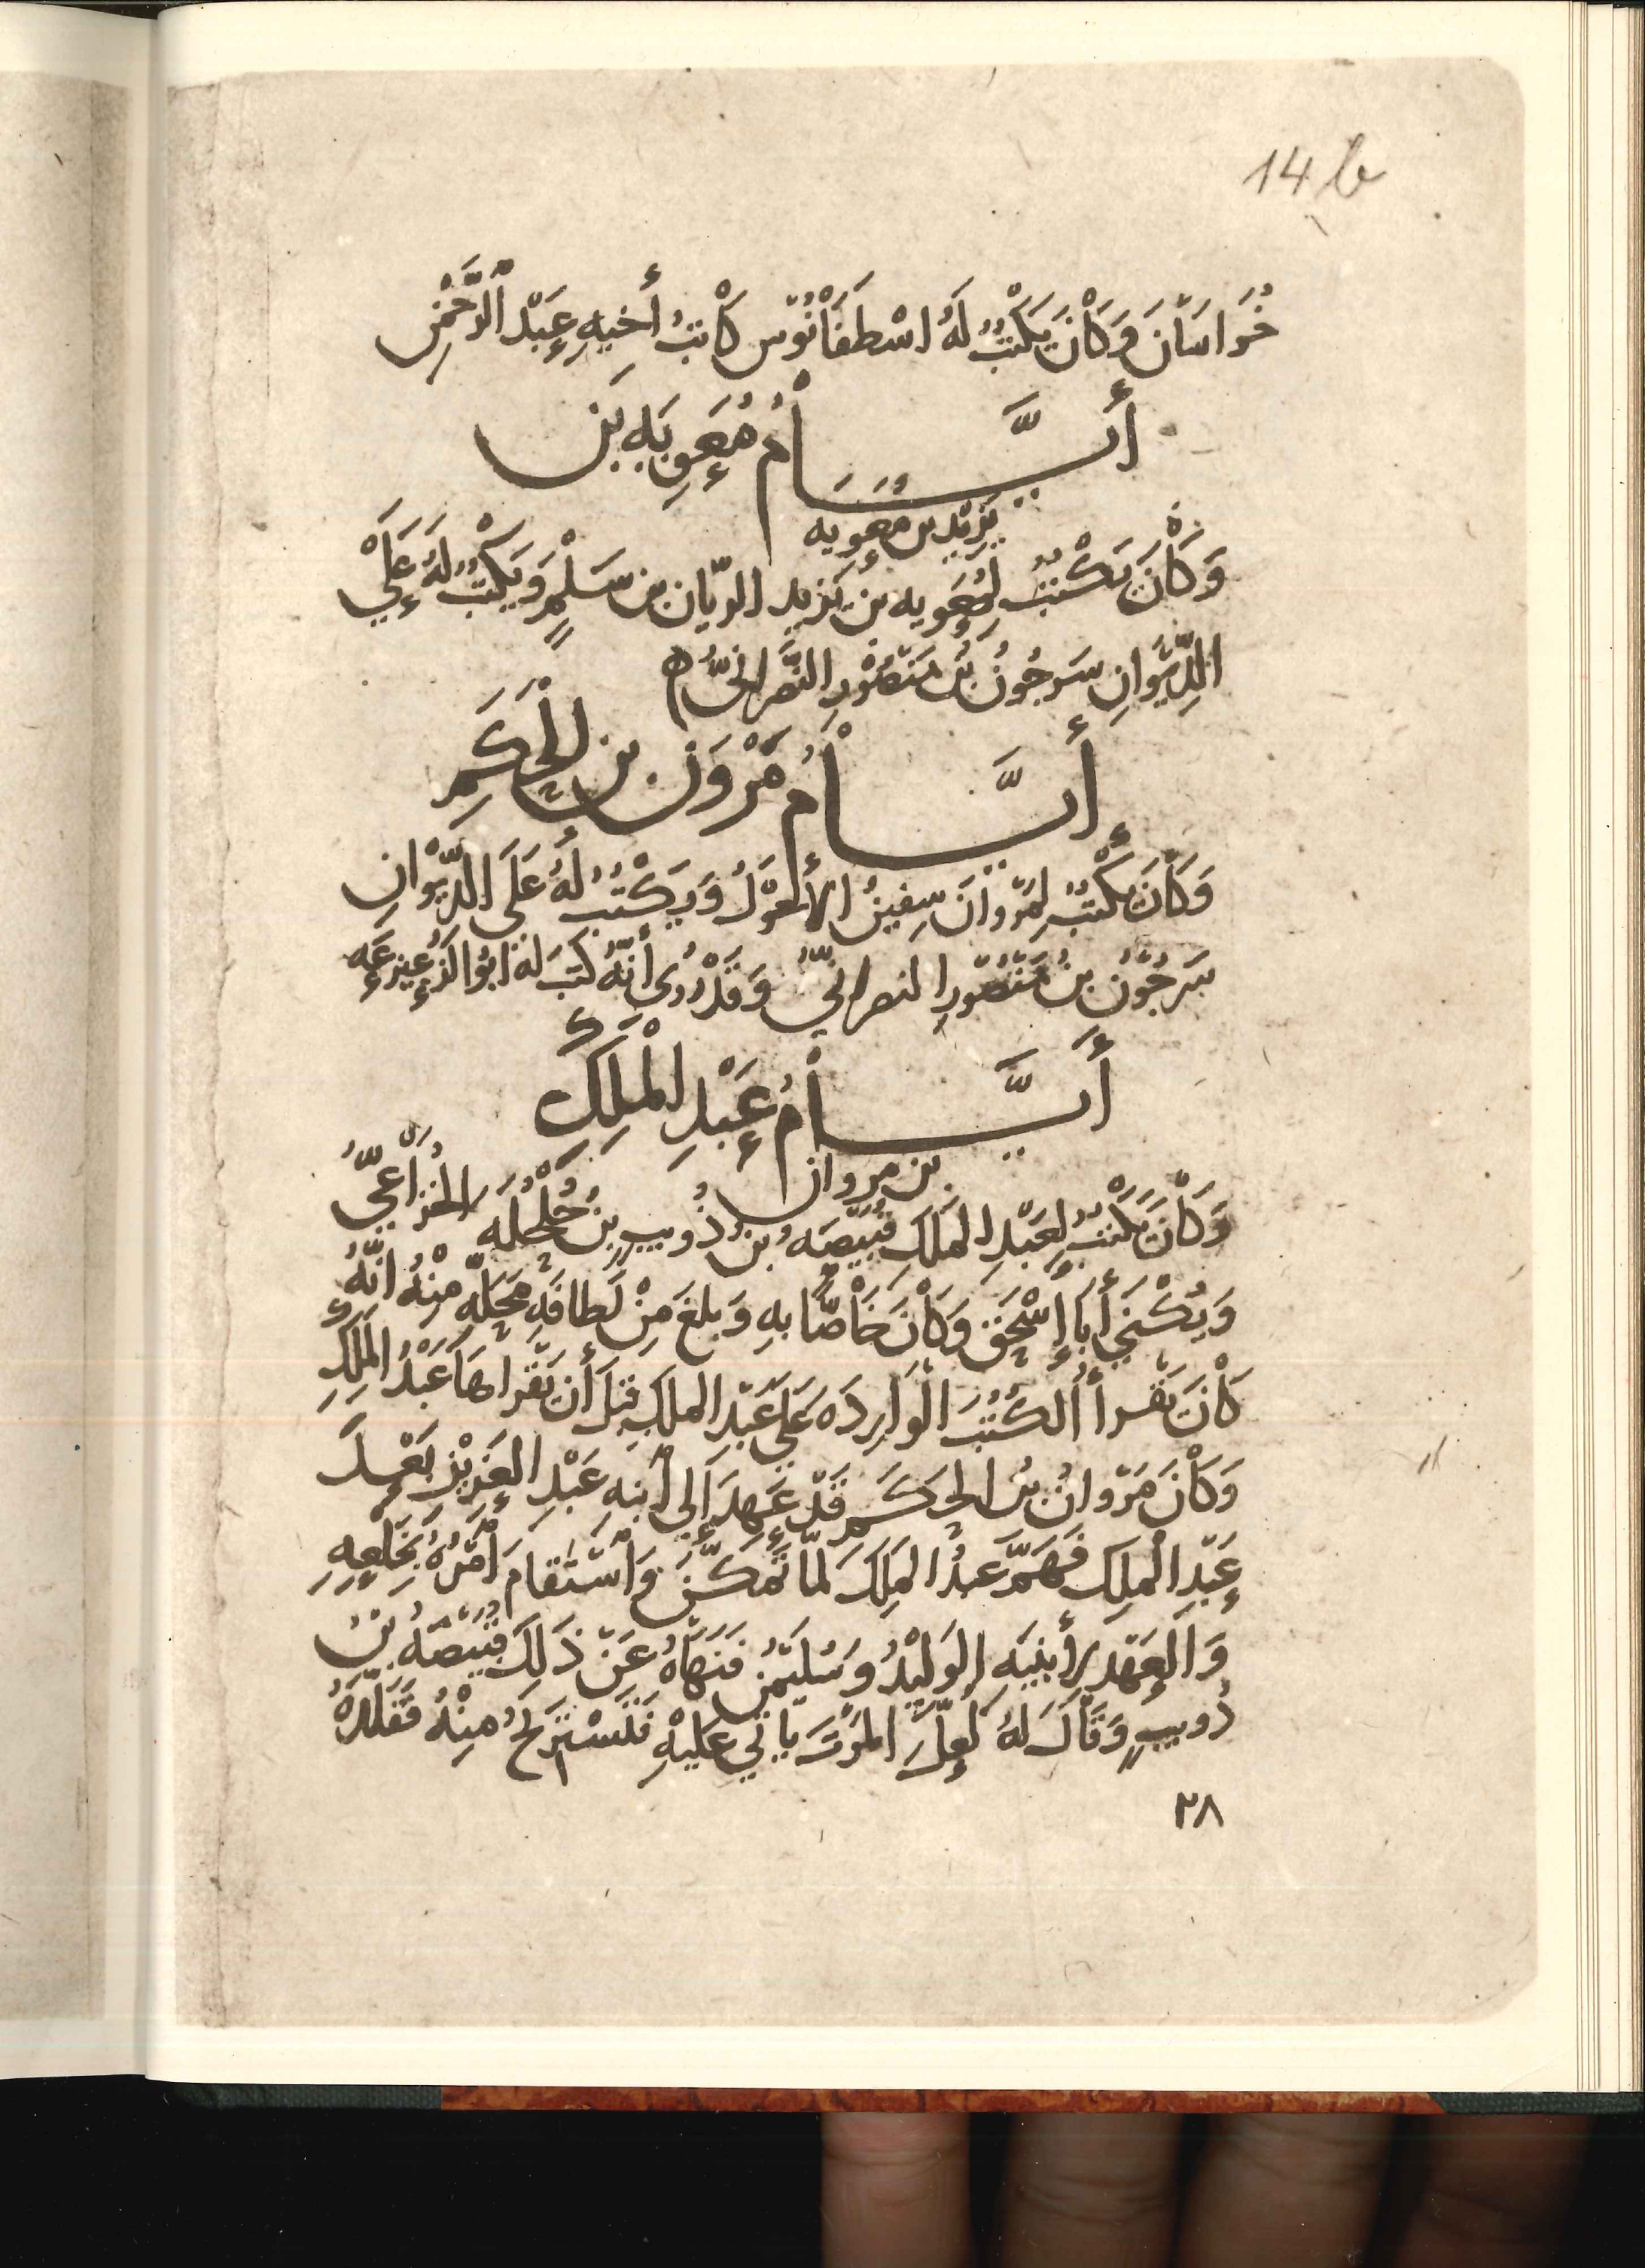 14 b
خُرَاسَانَ وَكَانَ يَكْتُبُ لَهُ اسْطَفَانُوس كَاتِبُ أَخِيهِ عَبْد الرَّحْمٰنِ
أَيَّامُ مُعٰوِيَهِ بنِ
يَزِيْد بن مُعٰوِيه
وَكَانَ يَكْتُبُ لِمُعَٰوِيه بنِ يَزِيد الريّان بن مُسْلِمٍ وَيَكْتُبُ لَهُ عَلَى
الدِّيْوَانِ سَرجُونُ بنُ مَنْصُوْرِ النَّصْرَانِيُّ ه
أَيَّامُ مَرْوٰنَ بنِ الْحَكَمِ
وَكَانَ يَكْتُبُ لِمَرْوانَ سِفينُ الأَحْوَلُ وَيَكْتُبُ لَهُ عَلَى الدِّيْوَانِ
سَرجُوْن بنُ مَنْصُوْرِ النصرانيُّ وَقَدْ رُوِى أَنَّهُ كَتَبَ لَهُ ابُو الزُعَيزِعَهِ
أَيَّامُ عَبْدِ الْمَلِكِ
بن مروان
وَكَانَ يَكْتُبُ لِعَبْدِ المَلِكِ قَبِيْصَهُ بنُ ذُوِيبٍ بنِ حُلْحُلَه الخُزَاعِيُّ
وَيُكْنَى أَبَا إِسْحٰقَ وَكَانَ خَاصًّا بهِ وَبلغَ مِنْ لَطافَهِ مَحَلِّهِ مِنْهُ انَّهُ
كَانَ يَقرأ الكُتُبَ الْوَارِدَه عَلَى عَبْد الملكِ قبلَ أَن يَقْرَاهَا عَبْدُ المَلِكِ
وَكَانَ مَرْوانُ بنُ الحَكَمِ قَدْ عَهِدَ إِلَى ابْنِهِ عَبْدِ العَزِيْزِ بَعْدَ
عَبْدِ الْمَلِكِ فَهَمَّ عَبْدُ المَلِكِ لَمَّا تَمَكَّنَ وَاسْتَقَامَ أَمْرُهُ بِخَلْعِهِ
وَالعَهْدِ لأبنَيْهِ الوَلِيْدُ وسُلَيْمٰنُ فَنَهَاهُ عَنْ ذَلِكَ قَبِيْصَهُ بْنُ
ذُويبٍ وَقَالَ لَهُ لَعَلَّ المَوْتَ يَاتِي عَلَيْهِ فَتَسْتَرِيحُ مِنْهُ فَقَلَّدَهُ
٢٨